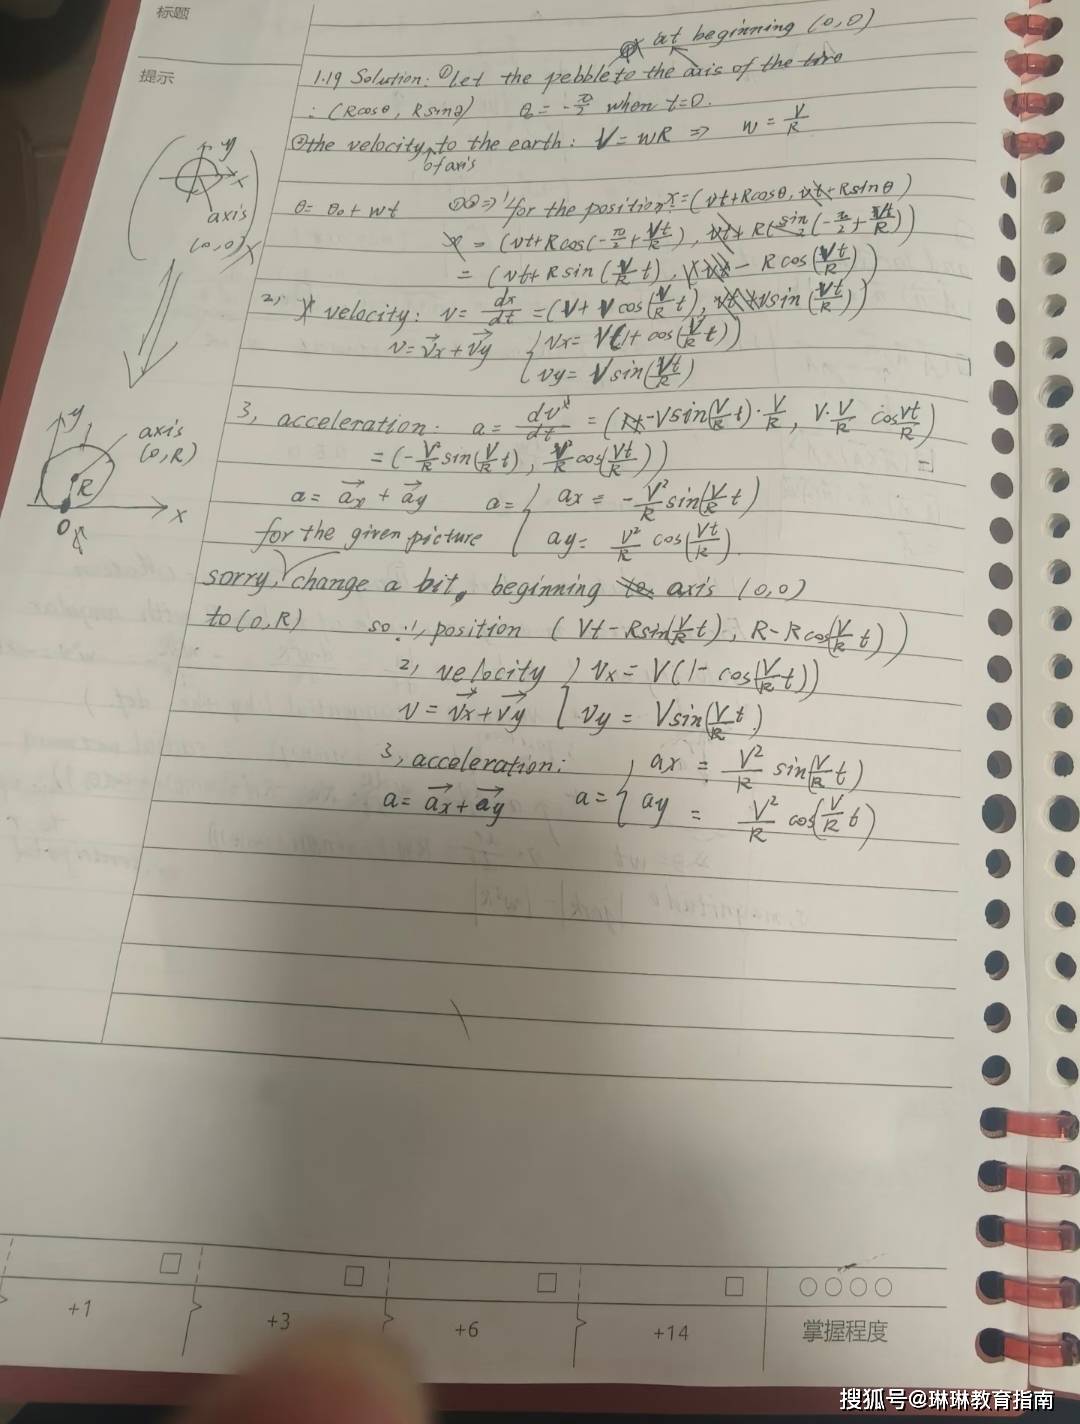 标题
提示
at beginning (0,0)
1.19 Solution: ① Let the pebble to the axis of the tire
: (Rcosθ, Rsinθ) θ₀ = -π/2 when t=0.
② the velocity of axis to the earth: V = wR ⇒ w = V/R
θ = θ₀ + wt ①② ⇒ 1, for the position: x = (vt+Rcosθ, Rsinθ)
= (vt+Rcos(-π/2 + Vt/R), R(sin(-π/2 + Vt/R))
= (vt+Rsin(V/R t), -Rcos(Vt/R))
2, velocity: v = dx/dt = (V+Vcos(V/R t), Vsin(Vt/R))
v = vx + vy { vx = V(1+cos(V/R t))
vy = Vsin(Vt/R)
3, acceleration: a = dv/dt = (-Vsin(V/R t)·V/R, V·V/R cos Vt/R)
= (-V²/R sin(V/R t), V²/R cos(Vt/R))
a = ax + ay a = { ax = -V²/R sin(V/R t)
ay = V²/R cos(Vt/R)
for the given picture
sorry, change a bit, beginning axis (0,0)
to (0,R) so: 1, position (Vt-Rsin(V/R t), R-Rcos(V/R t))
2, velocity { vx = V(1-cos(V/R t))
v = vx + vy vy = Vsin(V/R t)
3, acceleration: { ax = V²/R sin(V/R t)
a = ax + ay a = ay = V²/R cos(V/R t)
y
x
axis
(0,0)
y
axis
(0,R)
R
x
0
+1
+3
+6
+14
掌握程度
搜狐号@琳琳教育指南